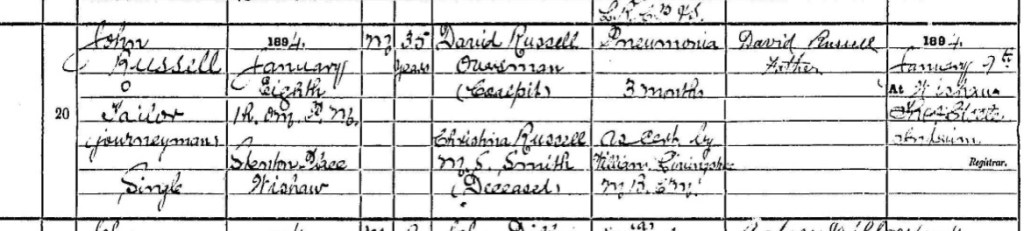 L.R.C.P. & S.
John
Russell
Tailor
(journeyman)
Single
1894.
January
Eighth
1h. 0m. P.M.
Stenton Place
Wishaw
M
35
years
David Russell
Oversman
(Coalpit)
Christina Russell
M.S. Smith
(Deceased)
Pneumonia
3 months
As Cert by
William Livingstone
M.B. CM.
David Russell
Father
1894.
January 9th
At Wishaw
Registrar.
20